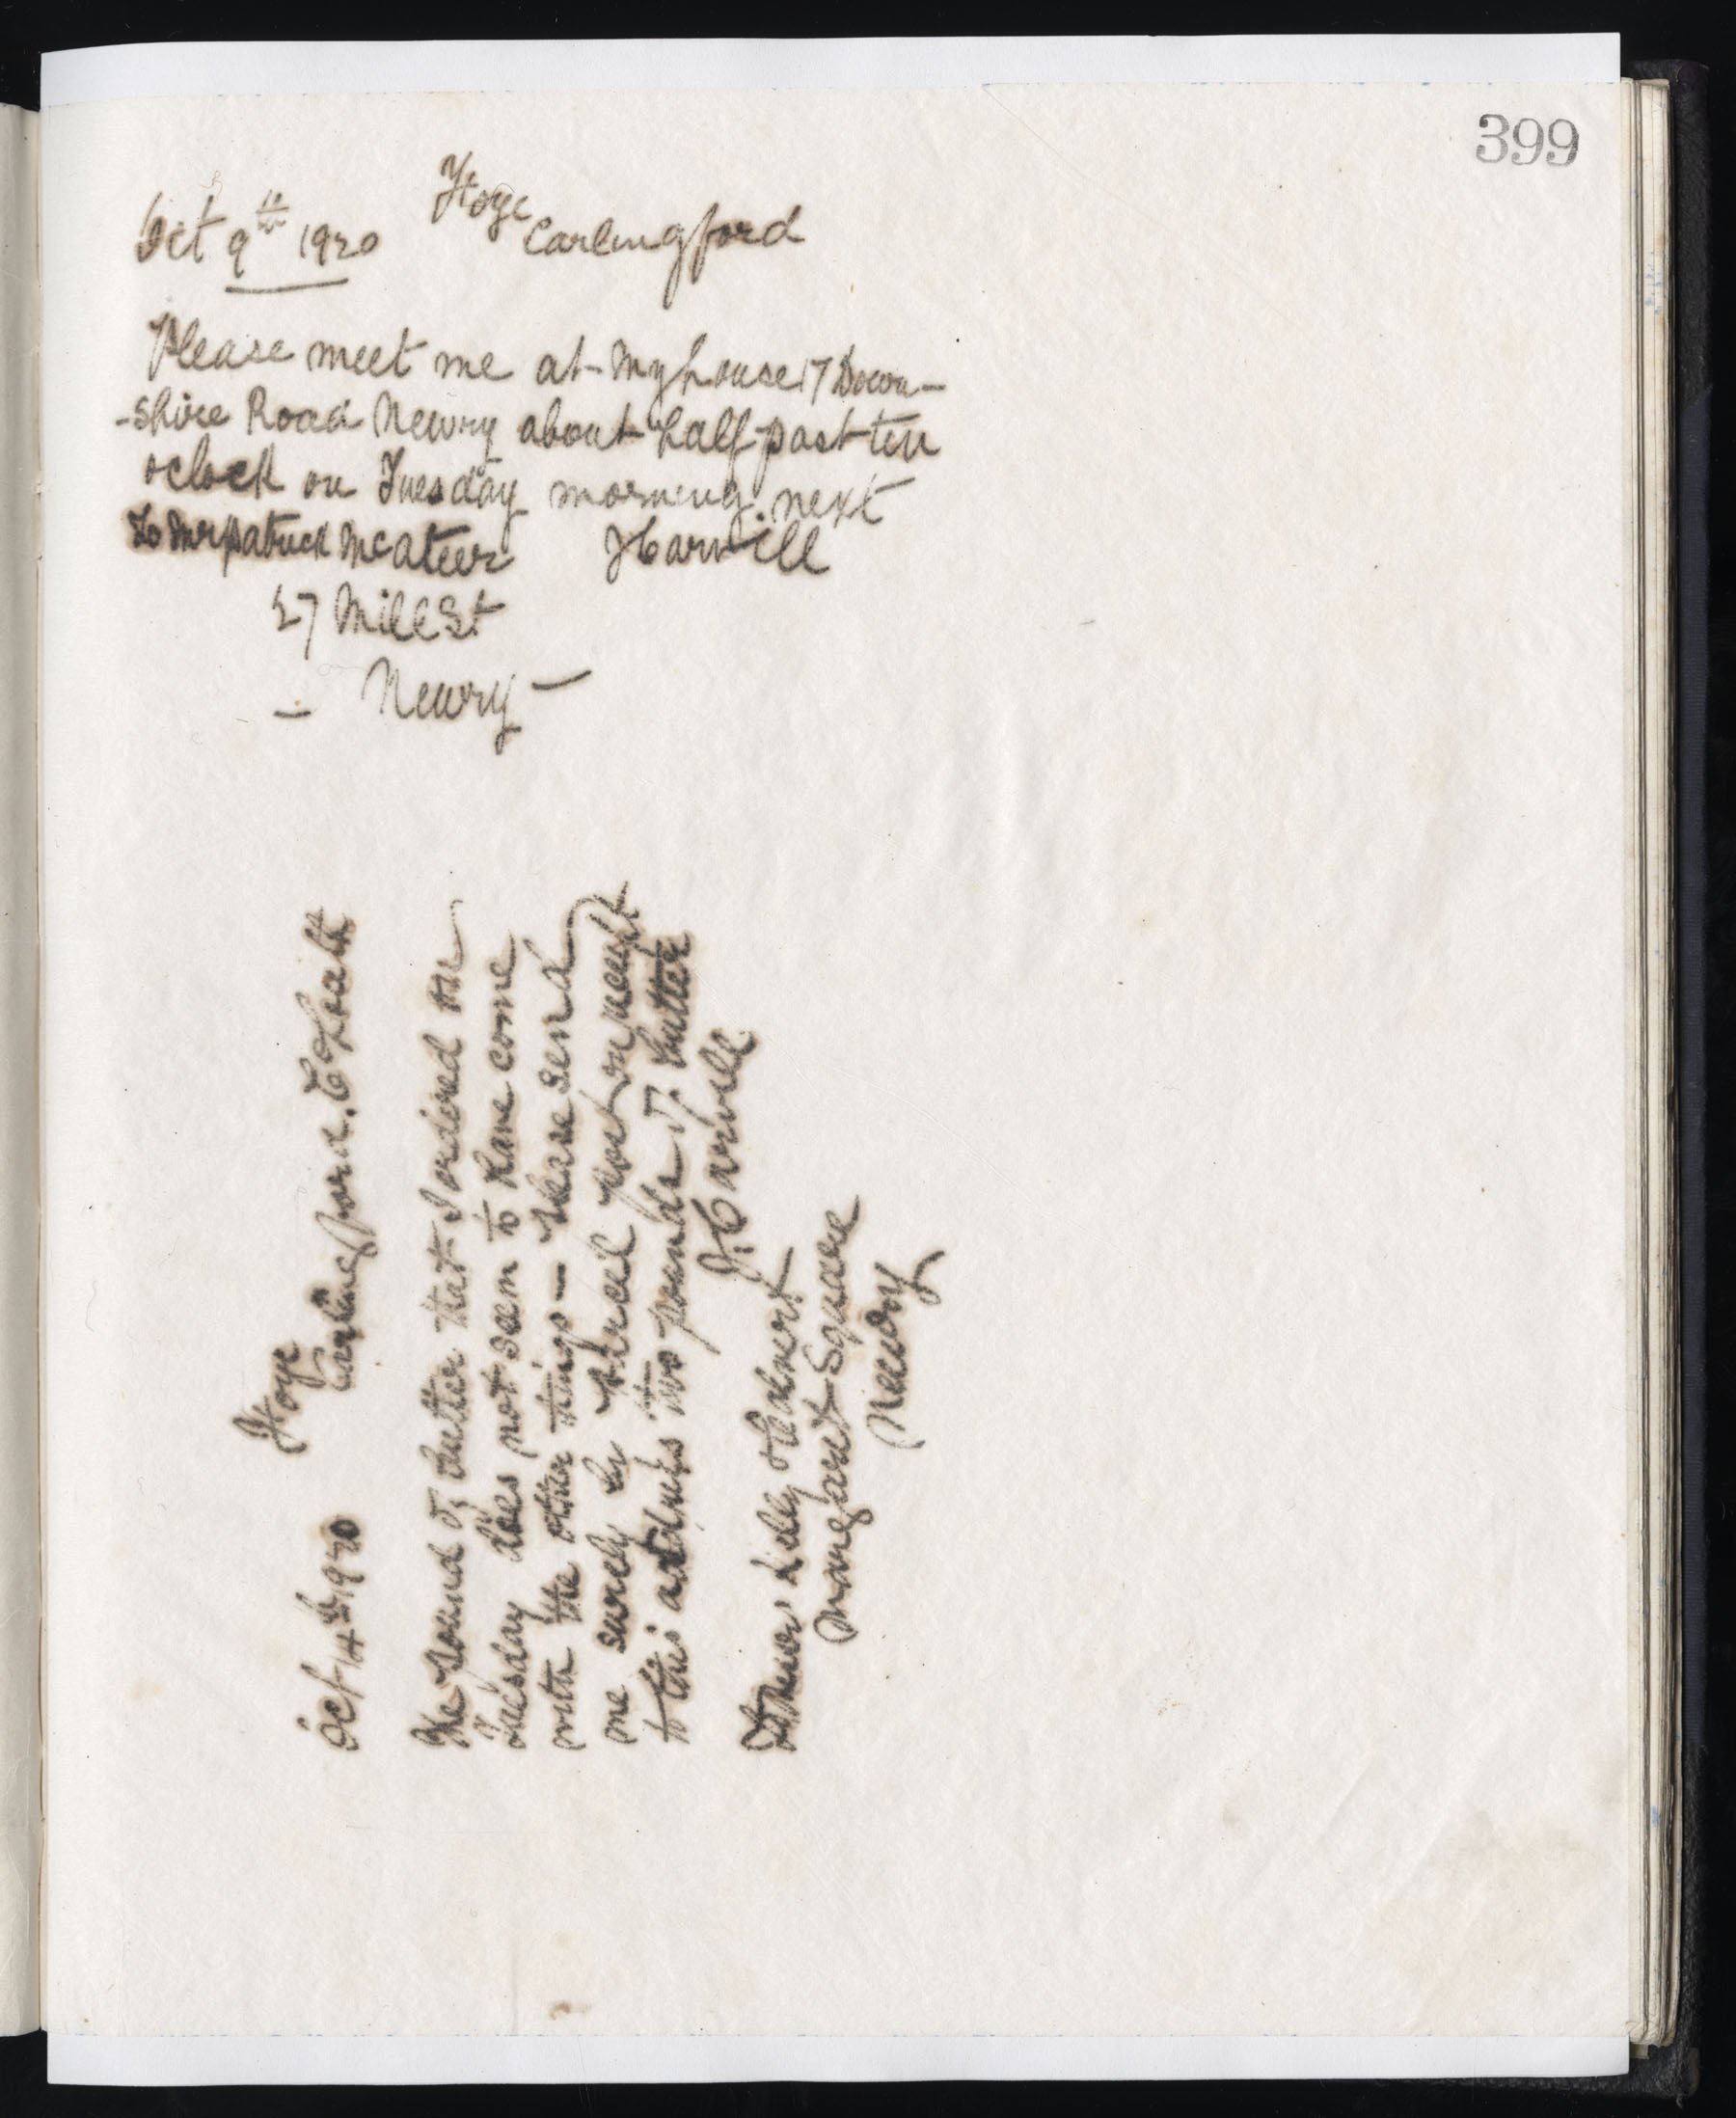 399
Oct 9th 1920
Carlingford
Please meet me at my house 17 Down-
-shire Road Newry about half past ten
oclock on Tuesday morning next
To Mr Patrick McAteer
27 Mill St
— Newry —
Oct 14th 1920
Carlingford. Co Louth
The pound of butter that I ordered on
Tuesday does not seem to have come
with the other things — Please send
me surely by parcel post on receipt
to this address two pounds of butter
J Carvill
Margaret Square
Newry